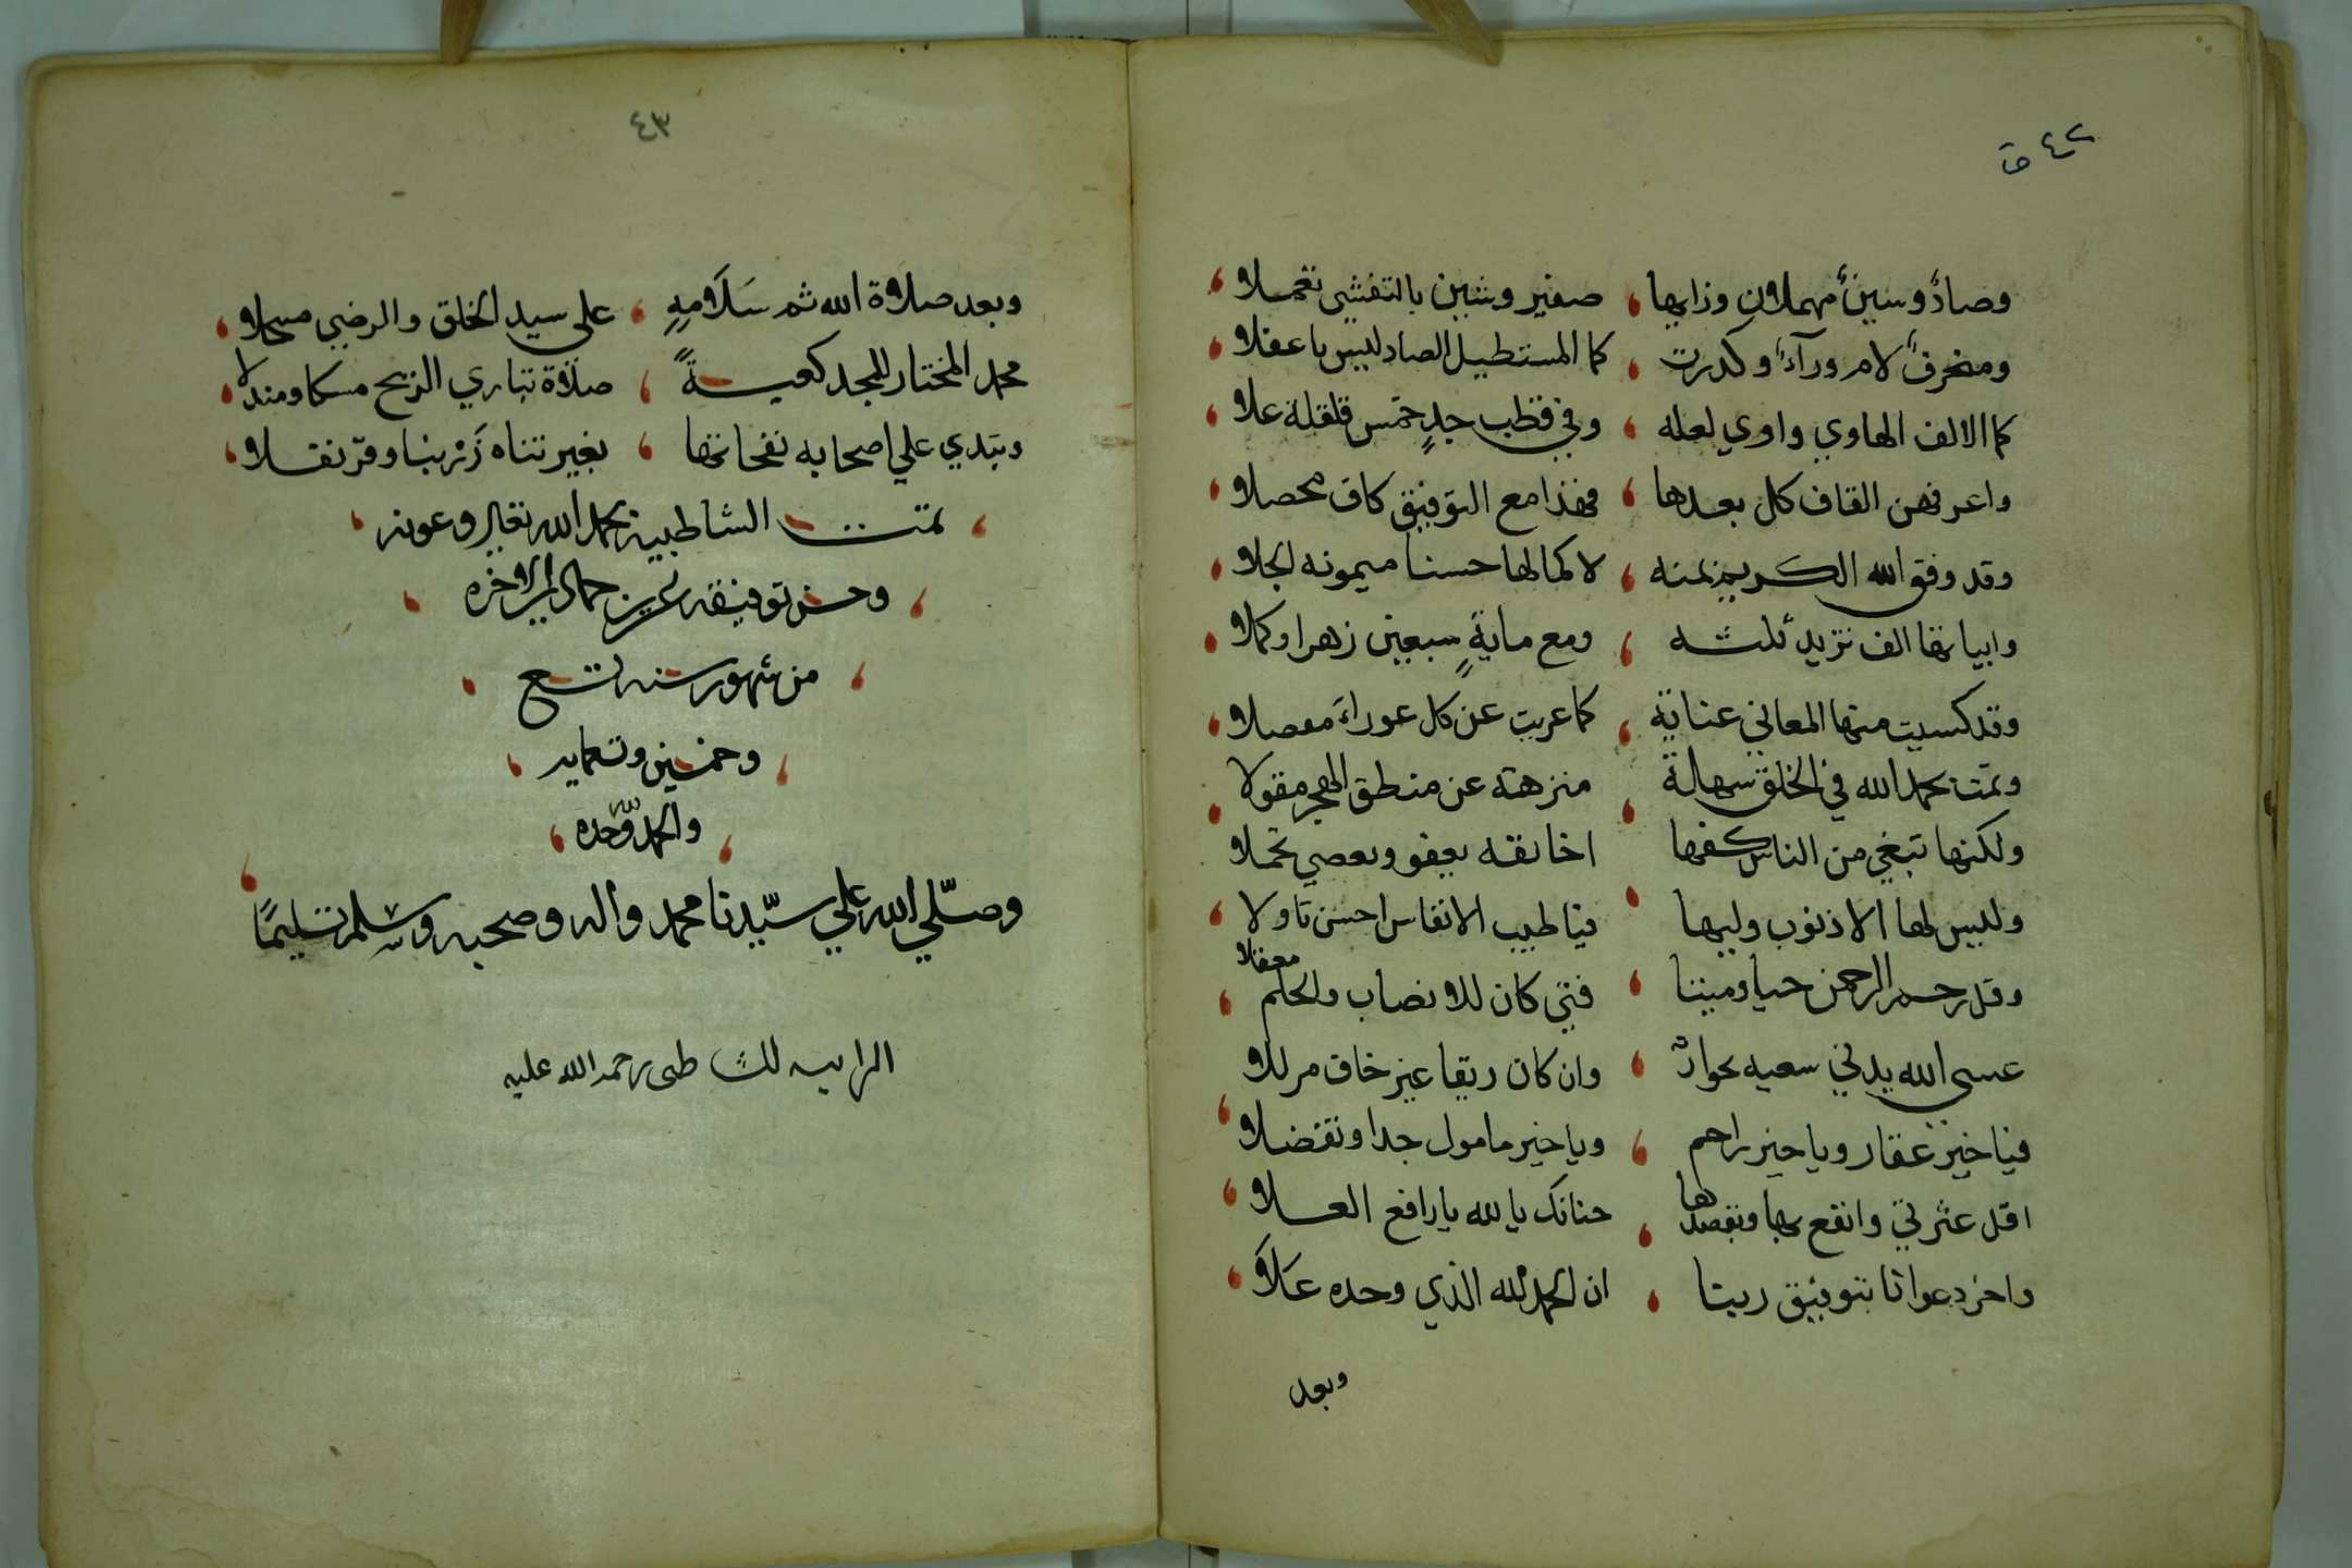 ٤٢ ق
وصادٌ وسينٌ مهملان وزايها صفير وشين بالتفشي تعملا
ومنحرفٌ لام ورآءٌ وكررت كما المستطيل الضاد ليس باغفلا
كما الالف الهاوي واوي لعله وفي قطب جدٍ خمس قلقلة علا
واعرفهن القاف كل يعدها فهذا مع التوفيق كاف محصلا
وقد وفق الله الكريم بمنه لاكمالها حسنا ميمونه الجلا
وابياتها الف تزيد ثلثه ومع مايةٍ سبعين زهرا وكملا
وقد كسيت منها المعاني عناية كما عريت عن كل عوراءَ مفصلا
وتمت بحمد الله في الخلق سهالة منزهة عن منطق الهجر مقولا
ولكنها تبغي من الناس كفها اخا ثقه يعفو ويعصي تجملا
وليس لها الا ذنوب وليها فيا طيب الانفاس احسن تاولا
وقل رحم الرحمن حيا وميتا فتي كان للانصاب والحلم معقلا
عسى الله يدني سعيه بجوازه وان كان زيفا غير خاف مزللا
فيا خير غفار ويا خير راحم ويا خير مامول جدا وتفضلا
اقل عثرتي وانفع بها وبقصدها حنانك يا لله يا رافع العلا
واخر دعوانا بتوفيق ربنا ان الحمد لله الذي وحده عَلاَ
وبعد
٤٣
وبعد صلاة الله ثم سَلاَمهِ على سيد الخلق والرضي مسجلا
محمد المختار للمجد كعبةً صلاة تباري الريح مسكا ومندلا
وتبدي علي اصحابه نفحاتها بغير تناه زَرْنبا وقرنفلا
تمت الشاطبية بحمد الله تعالى وعونه
وحسن توفيقه جمادى الاخره
من شهور سنة تسع
وخمسين
والحمد لله وحده
وصلّي الله علي سيّدنا محمد واله وصحبه وسلم تسليمًا
الرايىه للشاطبى رحمة الله عليه